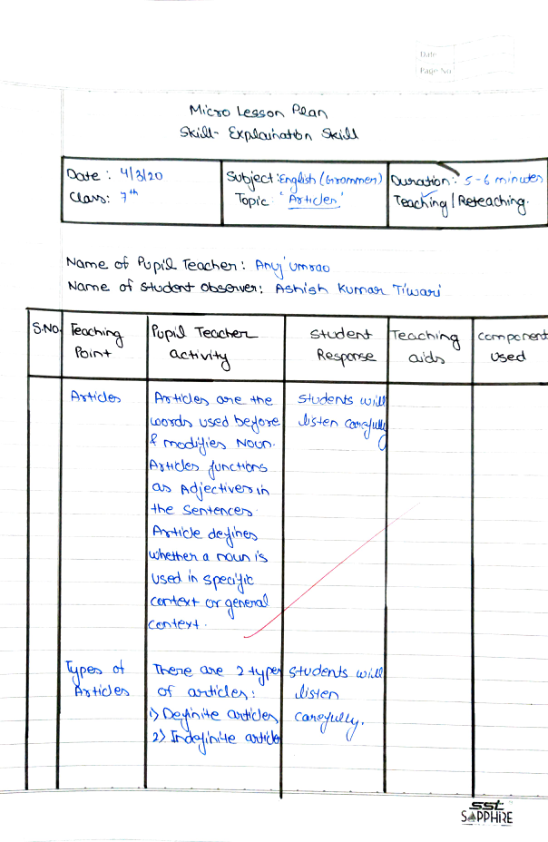 Date
Page No
Micro Lesson Plan
Skill- Explaination Skill
Date : 4/3/20
Class: 7th
Subject: English (Grammer)
Topic: "Articles"
Duration: 5-6 minutes
Teaching / Reteaching.
Name of Pupil Teacher: Anuj Umrao
Name of Student Observer: Ashish Kumar Tiwari
S.No.
Teaching
Point
Pupil Teacher
activity
Student
Response
Teaching
aids
Component
used
Articles
Articles are the
words used before
& modifies Noun.
Articles functions
as Adjectives in
the Sentences
Article defines
whether a noun is
used in specific
context or general
context.
Students will
listen carefully
Types of
Articles
There are 2 types
of articles:
1) Definite articles
2) Indefinite article
Students will
listen
carefully.
sst
SAPPHIRE